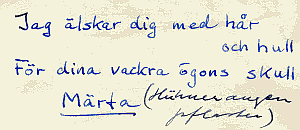 Jag älskar dig med hår
och hull
För dina vackra ögons skull
Märta (Hühneraugen
pflaster)